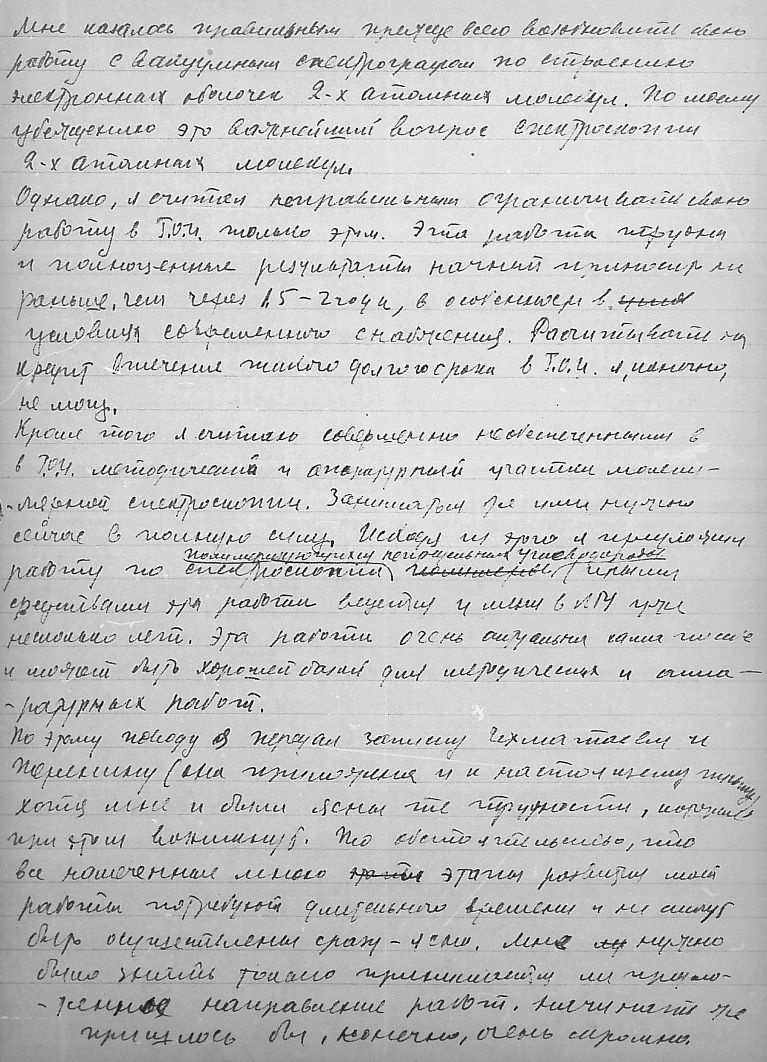 Мне казалось правильным прежде всего возобновить свою
работу с вакуумным спектрографом по строению
электронных оболочек 2-х атомных молекул. По моему
убеждению это важнейший вопрос спектроскопии
2-х атомных молекул.
Однако, я считал неправильным ограничивать свою
работу в Г.О.И. только этим. Эта работа трудна
и полноценные результаты начнет приносить не
раньше, чем через 1,5-2 года, в особенности в
условиях современного снабжения. Расчитывать на
кредит в течение такого долгого срока в Г.О.И. я, конечно,
не могу.
Кроме того я считаю совершенно необеспеченными в
в Г.О.И. методический и аппаратурный участки молеку-
-лярной спектроскопии. Заниматься же ими нужно
сейчас в полную силу. Исходя из этого я предложил
полимеризующихся непредельных углеводородов
работу по спектроскопии
средствами эта работа ведется у меня в ЛГУ уже
несколько лет. Эта работа очень актуальна сама по себе
и может быть хорошей базой для методических и аппа-
-ратурных работ.
По этому поводу я передал записку Чехматаеву и
(она приложена и к настоящему письму)
хотя мне и были ясны те трудности, которые
при этом возникнут. То обстоятельство, что
все намеченные мною этапы развития моей
работы потребуют длительного времени и не могут
быть осуществлены сразу - ясно. Мне нужно
было знать только принимается ли предло-
-женное направление работ. Начинать же
пришлось бы, конечно, очень скромно.